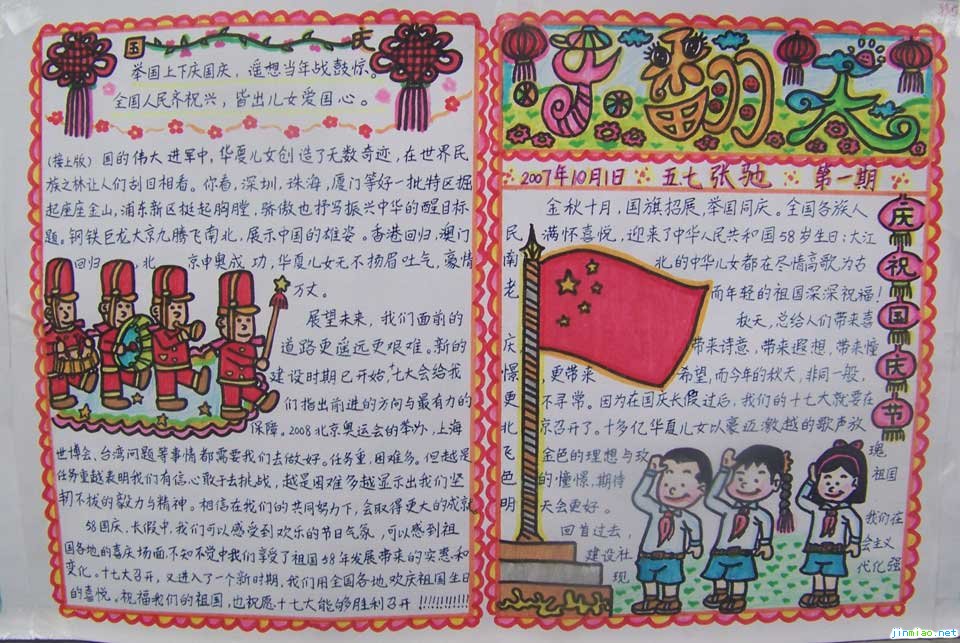 国庆
举国上下庆国庆，遥想当年战鼓惊。
全国人民齐祝兴，皆出儿女爱国心。
(接上版) 国的伟大进军中，华夏儿女创造了无数奇迹，在世界民
族之林让人们刮目相看。你看，深圳，珠海，厦门等好一批特区掘
起座座金山，浦东新区挺起胸膛，骄傲也抒写振兴中华的醒目标
题。钢铁巨龙大京九腾飞南北，展示中国的雄姿。香港回归，澳门
回归，北京申奥成功，华夏儿女无不扬眉吐气，豪情
万丈。
展望未来，我们面前的
道路更遥远更艰难。新的
建设时期已开始，十七大会给我
们指出前进的方向与最有力的
保障。2008北京奥运会的举办，上海
世博会、台湾问题等事情都需要我们去做好。任务重，困难多。但越是
任务重越表明我们有信心敢于去挑战，越是困难多越显示出我们坚
韧不拔的毅力与精神。相信在我们的共同努力下，会取得更大的成就
58国庆，长假中，我们可以感受到欢乐的节日气氛，可以感到祖
国各地的喜庆场面，不知不觉中我们享受了祖国58年发展带来的实惠和
变化。十七大召开，又进入了一个新时期，我们用全国各地欢庆祖国生日
的喜悦。祝福我们的祖国，也祝愿十七大能够胜利召开!!!!!!!!!!!!
手翻天
2007年10月1日 五.七 张驰 第一期
庆祝国庆节
金秋十月，国旗招展，举国同庆。全国各族人
民，满怀喜悦，迎来了中华人民共和国58岁生日；大江
南北的中华儿女都在尽情高歌，为古
老而年轻的祖国深深祝福！
秋天，总给人们带来喜
庆，带来诗意，带来遐想，带来憧
憬，更带来希望，而今年的秋天，非同一般，
更不寻常。因为在国庆长假过后，我们的十七大就要在
北京召开了。十多亿华夏儿女以豪迈激越的歌声放
飞金色的理想与玫瑰
色的憧憬，期待祖国
明天会更好。
回首过去，我们在
建设社会主义
现代化强
jinmiao.net